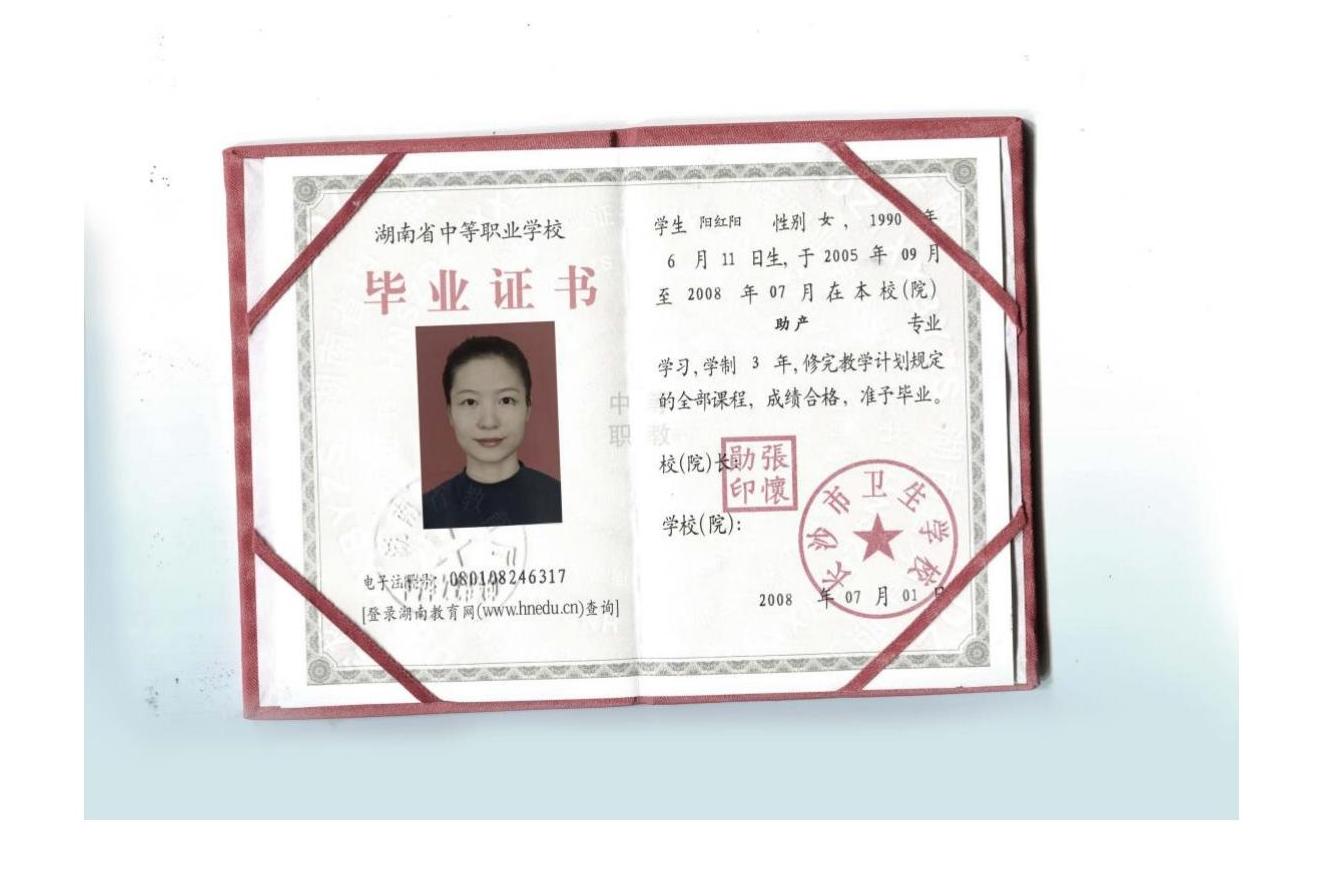 湖南省中等职业学校
毕业证书
电子注册号：080108246317
[登录湖南教育网(www.hnedu.cn)查询]
中等
职教
学生 阳红阳 性别 女，1990 年
6 月 11 日生，于 2005 年 09 月
至 2008 年 07 月在本校(院)
助产 专业
学习，学制 3 年，修完教学计划规定
的全部课程，成绩合格，准予毕业。
校(院)长：
張懷勛印
学校(院)：
长沙市卫生学校
2008 年 07 月 01 日